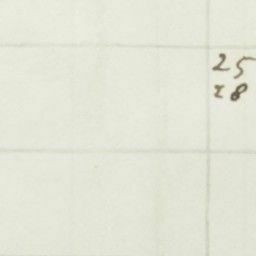 25
28